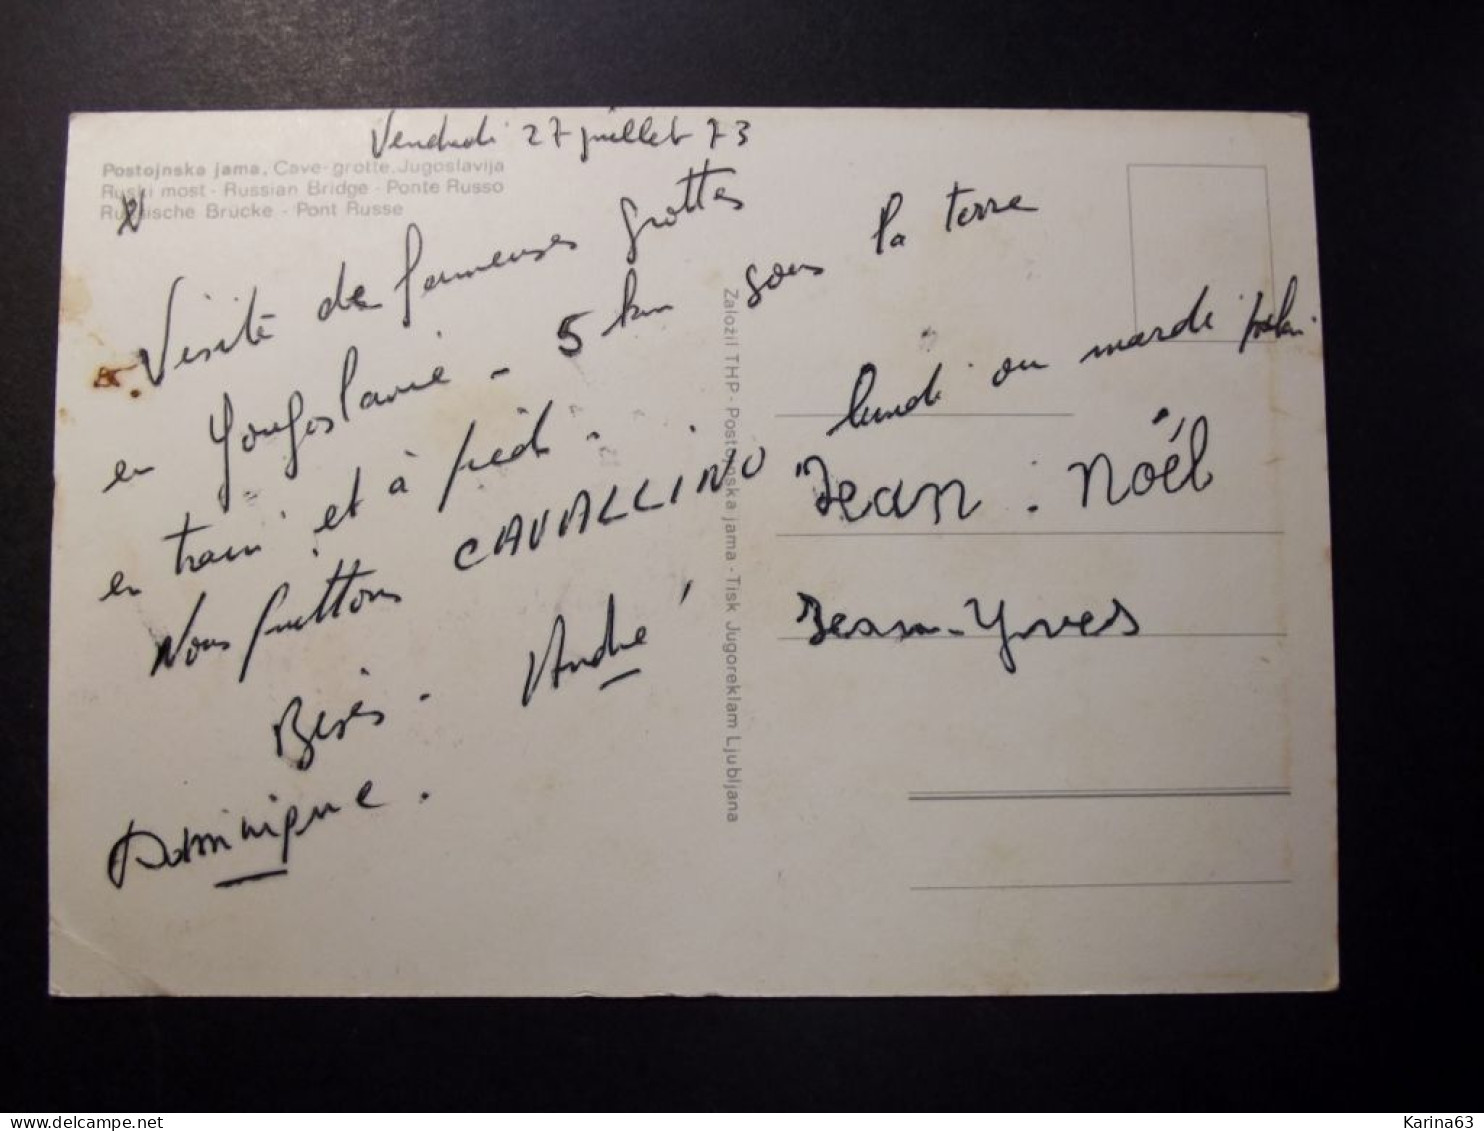 Vendredi 27 juillet 73
Postojnska jama, Cave-grotte, Jugoslavija
Ruski most - Russian Bridge - Ponte Russo
Russische Brücke - Pont Russe
Visite de fameuses grottes
en Yougoslavie - 5 km sous la terre
en train et à pied -
Nous quittons CAVALLINO lundi ou mardi
Bisés - André
Dominique.
Založil THP - Postojnska jama - Tisk Jugoreklam Ljubljana
Jean-Noël
Jean-Yves
Karina63